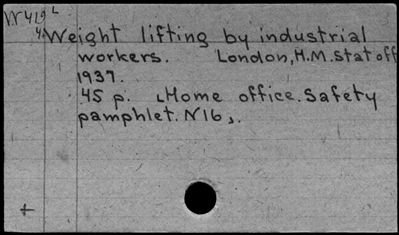 Weight lifting by industrial
workers. London, H.M. stat off
1937.
45 p. (Home office. Safety
pamphlet. N16).
+